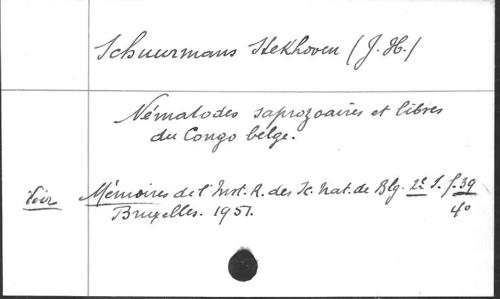 Schuurmans Stekhoven (J. H.)
Nématodes saprozoaires et libres
du Congo belge.
Voir Mémoires de l'Inst. R. des Sc. Nat. de Blg. 2e S. f. 39
Bruxelles. 1951. 4°